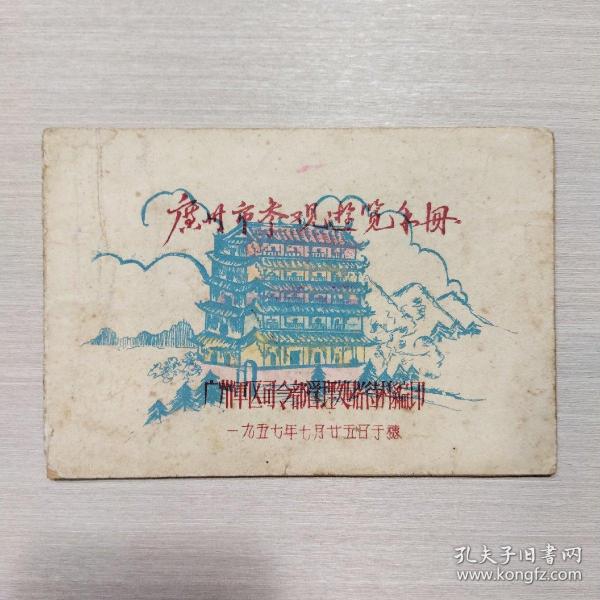 广州市参观游览手册
广州軍区司令部管理处招待科編印
一九五七年七月廿五日于穗
孔夫子旧书网
www.kongfz.com